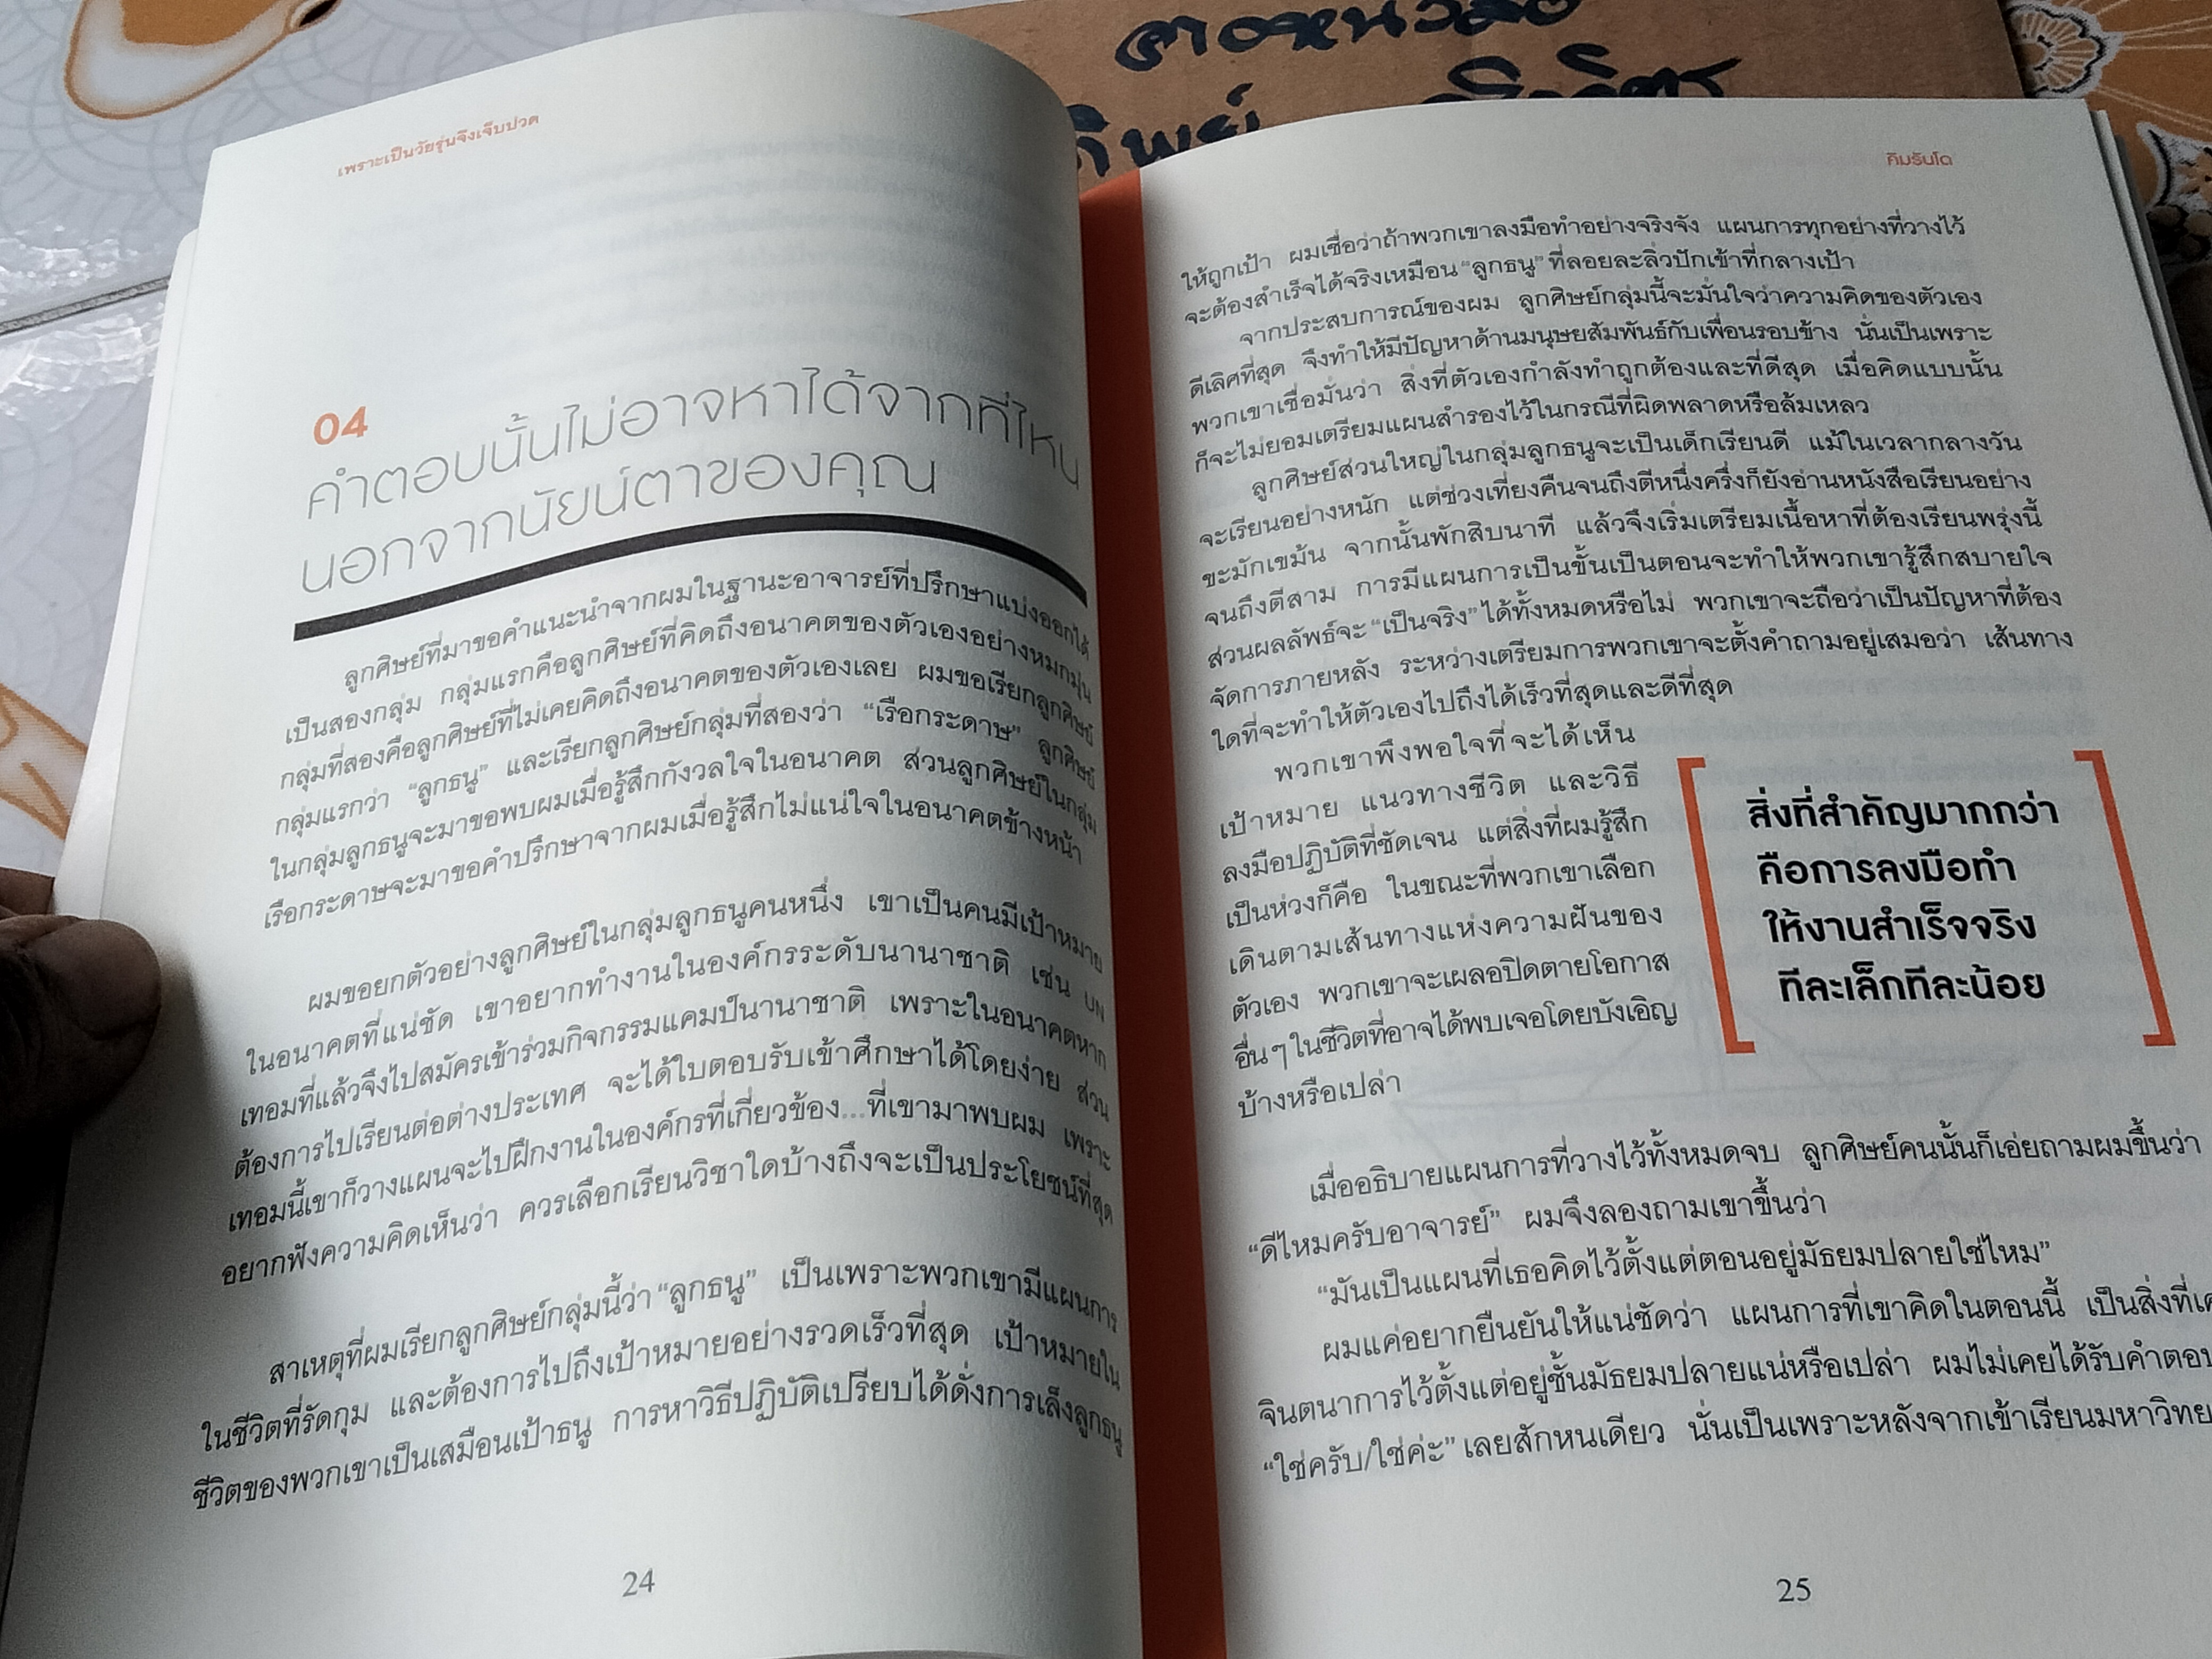 เพราะเป็นวัยรุ่นจึงเจ็บปวด
04
คำตอบนั้นไม่อาจหาได้จากที่ไหน
นอกจากนัยน์ตาของคุณ
ลูกศิษย์ที่มาขอคำแนะนำจากผมในฐานะอาจารย์ที่ปรึกษาแบ่งออกได้
เป็นสองกลุ่ม กลุ่มแรกคือลูกศิษย์ที่คิดถึงอนาคตของตัวเองอย่างหมกมุ่น
กลุ่มที่สองคือลูกศิษย์ที่ไม่เคยคิดถึงอนาคตของตัวเองเลย ผมขอเรียกลูกศิษย์
กลุ่มแรกว่า “ลูกธนู” และเรียกลูกศิษย์กลุ่มที่สองว่า “เรือกระดาษ” ลูกศิษย์
ในกลุ่มลูกธนูจะมาขอพบผมเมื่อรู้สึกกังวลใจในอนาคต ส่วนลูกศิษย์ในกลุ่ม
เรือกระดาษจะมาขอคำปรึกษาจากผมเมื่อรู้สึกไม่แน่ใจในอนาคตข้างหน้า
ผมขอยกตัวอย่างลูกศิษย์ในกลุ่มลูกธนูคนหนึ่ง เขาเป็นคนมีเป้าหมาย
ในอนาคตที่แน่ชัด เขาอยากทำงานในองค์กรระดับนานาชาติ เช่น UN
เทอมที่แล้วจึงไปสมัครเข้าร่วมกิจกรรมแคมป์นานาชาติ เพราะในอนาคตหาก
ต้องการไปเรียนต่อต่างประเทศ จะได้ใบตอบรับเข้าศึกษาได้โดยง่าย ส่วน
เทอมนี้เขาก็วางแผนจะไปฝึกงานในองค์กรที่เกี่ยวข้อง...ที่เขามาพบผม เพราะ
อยากฟังความคิดเห็นว่า ควรเลือกเรียนวิชาใดบ้างถึงจะเป็นประโยชน์ที่สุด
สาเหตุที่ผมเรียกลูกศิษย์กลุ่มนี้ว่า “ลูกธนู” เป็นเพราะพวกเขามีแผนการ
ในชีวิตที่รัดกุม และต้องการไปถึงเป้าหมายอย่างรวดเร็วที่สุด เป้าหมายใน
ชีวิตของพวกเขาเป็นเสมือนเป้าธนู การหาวิธีปฏิบัติเปรียบได้ดั่งการเล็งลูกธนู
24
คิมรันโด
ให้ถูกเป้า ผมเชื่อว่าถ้าพวกเขาลงมือทำอย่างจริงจัง แผนการทุกอย่างที่วางไว้
จะต้องสำเร็จได้จริงเหมือน “ลูกธนู” ที่ลอยละลิ่วปักเข้าที่กลางเป้า
จากประสบการณ์ของผม ลูกศิษย์กลุ่มนี้จะมั่นใจว่าความคิดของตัวเอง
ดีเลิศที่สุด จึงทำให้มีปัญหาด้านมนุษยสัมพันธ์กับเพื่อนรอบข้าง นั่นเป็นเพราะ
พวกเขาเชื่อมั่นว่า สิ่งที่ตัวเองกำลังทำถูกต้องและที่ดีสุด เมื่อคิดแบบนั้น
ก็จะไม่ยอมเตรียมแผนสำรองไว้ในกรณีที่ผิดพลาดหรือล้มเหลว
ลูกศิษย์ส่วนใหญ่ในกลุ่มลูกธนูจะเป็นเด็กเรียนดี แม้ในเวลากลางวัน
จะเรียนอย่างหนัก แต่ช่วงเที่ยงคืนจนถึงตีหนึ่งครึ่งก็ยังอ่านหนังสือเรียนอย่าง
ขะมักเขม้น จากนั้นพักสิบนาที แล้วจึงเริ่มเตรียมเนื้อหาที่ต้องเรียนพรุ่งนี้
จนถึงตีสาม การมีแผนการเป็นขั้นเป็นตอนจะทำให้พวกเขารู้สึกสบายใจ
ส่วนผลลัพธ์จะ “เป็นจริง” ได้ทั้งหมดหรือไม่ พวกเขาจะถือว่าเป็นปัญหาที่ต้อง
จัดการภายหลัง ระหว่างเตรียมการพวกเขาจะตั้งคำถามอยู่เสมอว่า เส้นทาง
ใดที่จะทำให้ตัวเองไปถึงได้เร็วที่สุดและดีที่สุด
พวกเขาพึงพอใจที่จะได้เห็น
เป้าหมาย แนวทางชีวิต และวิธี
ลงมือปฏิบัติที่ชัดเจน แต่สิ่งที่ผมรู้สึก
เป็นห่วงก็คือ ในขณะที่พวกเขาเลือก
เดินตามเส้นทางแห่งความฝันของ
ตัวเอง พวกเขาจะเผลอปิดตายโอกาส
อื่นๆ ในชีวิตที่อาจได้พบเจอโดยบังเอิญ
บ้างหรือเปล่า
สิ่งที่สำคัญมากกว่า
คือการลงมือทำ
ให้งานสำเร็จจริง
ทีละเล็กทีละน้อย
เมื่ออธิบายแผนการที่วางไว้ทั้งหมดจบ ลูกศิษย์คนนั้นก็เอ่ยถามผมขึ้นว่า
“ดีไหมครับอาจารย์” ผมจึงลองถามเขาขึ้นว่า
“มันเป็นแผนที่เธอคิดไว้ตั้งแต่ตอนอยู่มัธยมปลายใช่ไหม”
ผมแค่อยากยืนยันให้แน่ชัดว่า แผนการที่เขาคิดในตอนนี้ เป็นสิ่งที่
จินตนาการไว้ตั้งแต่อยู่ชั้นมัธยมปลายแน่หรือเปล่า ผมไม่เคยได้รับคำตอบ
“ใช่ครับ/ใช่ค่ะ” เลยสักหนเดียว นั่นเป็นเพราะหลังจากเข้าเรียนมหาวิทย
25